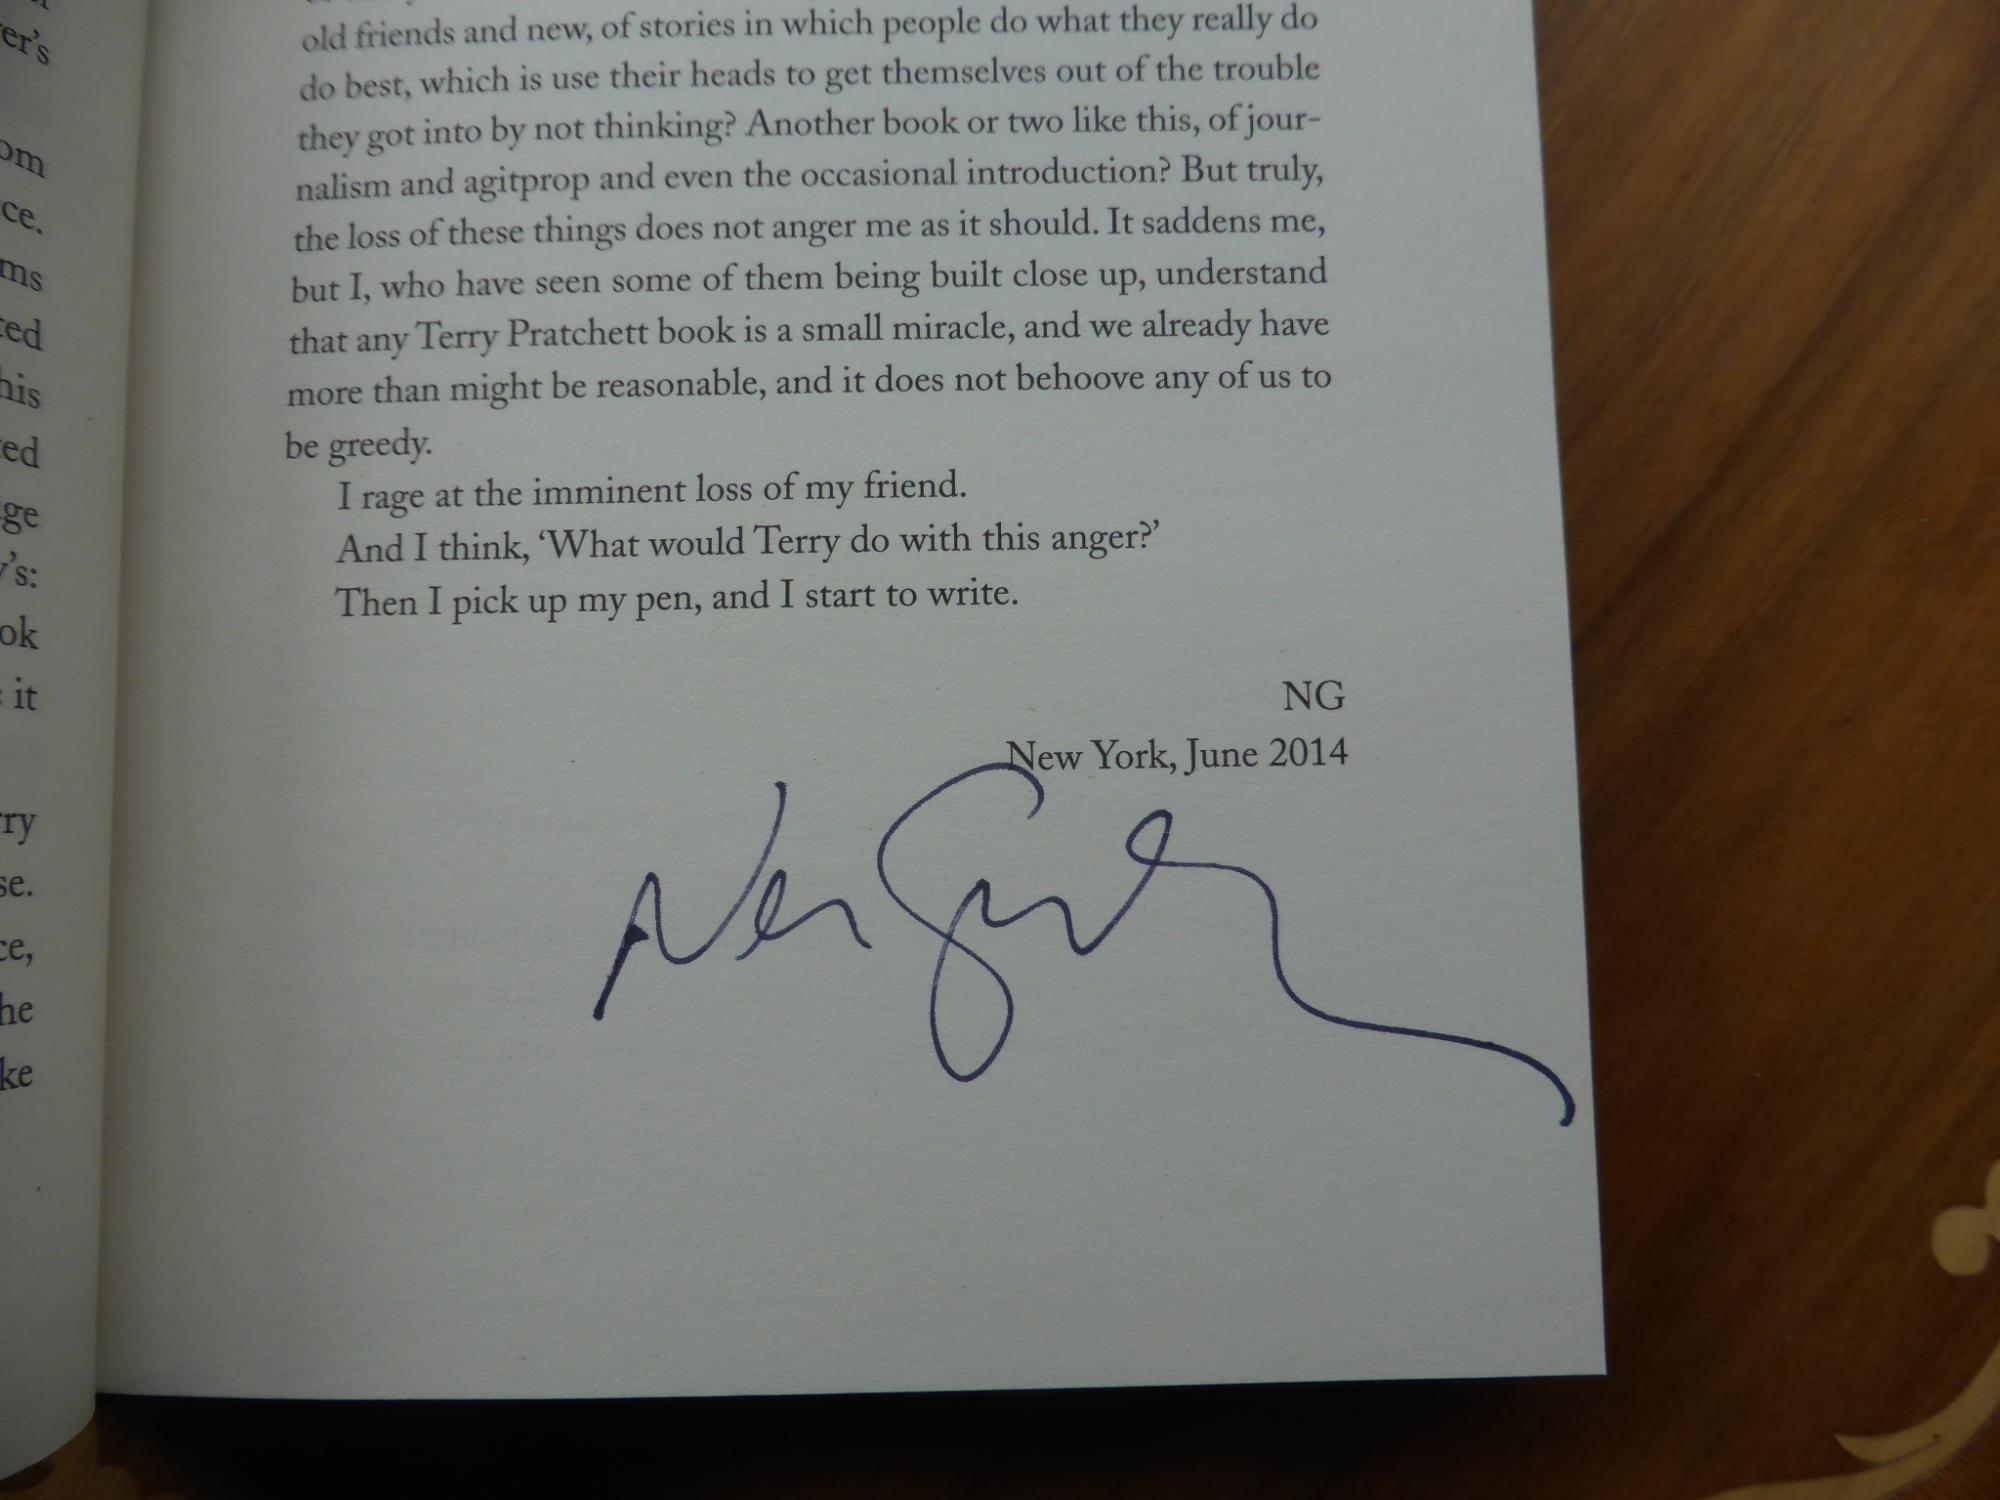 er's
om
ce.
ms
ted
his
ed
ge
y's:
ok
it
ry
se.
ce,
he
ke
old friends and new, of stories in which people do what they really do
do best, which is use their heads to get themselves out of the trouble
they got into by not thinking? Another book or two like this, of jour-
nalism and agitprop and even the occasional introduction? But truly,
the loss of these things does not anger me as it should. It saddens me,
but I, who have seen some of them being built close up, understand
that any Terry Pratchett book is a small miracle, and we already have
more than might be reasonable, and it does not behoove any of us to
be greedy.
I rage at the imminent loss of my friend.
And I think, ‘What would Terry do with this anger?’
Then I pick up my pen, and I start to write.
NG
New York, June 2014